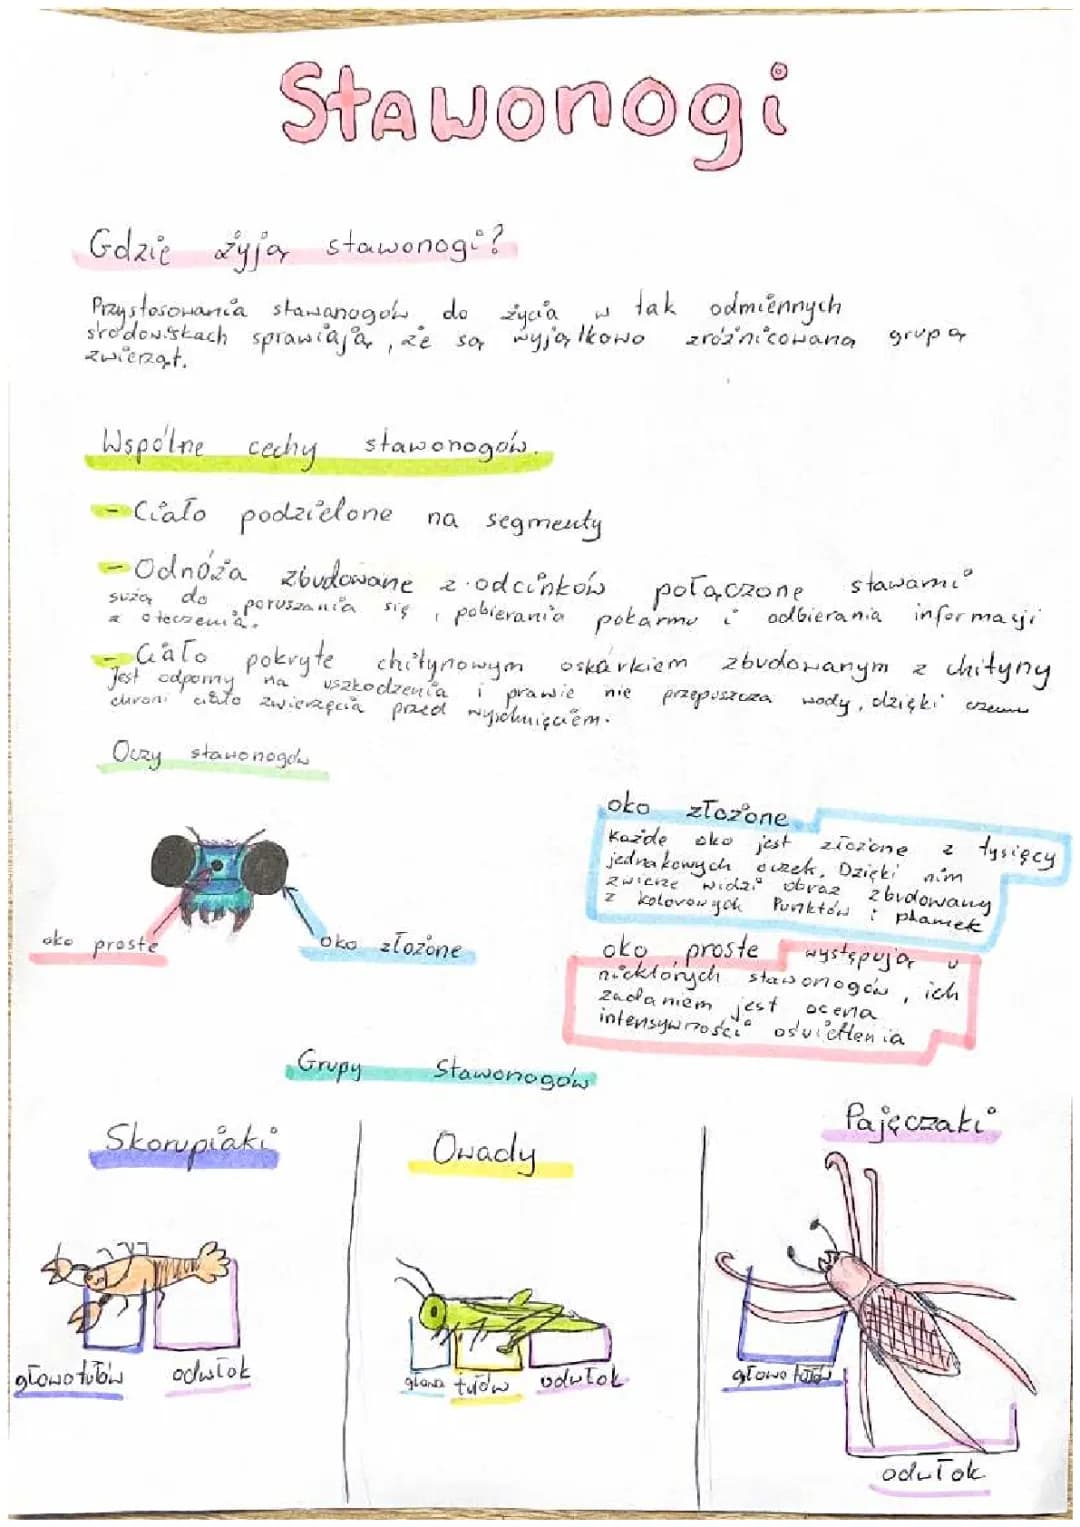 Stawonogi
Gdzie żyją stawonogi?
Przystosowania stawanogów do życia w tak odmiennych
środowiskach sprawiają, że są wyjątkowo zróżnicowaną grupą
zwierząt.
Wspólne cechy stawonogów.
- Ciało podzielone na segmenty
- Odnóża zbudowane z odcinków połączone stawami
sużą do poruszania się, pobierania pokarmu i odbierania informacji
z otoczenia.
- Ciało pokryte chitynowym oskórkiem zbudowanym z chityny
Jest odporny na uszkodzenia i prawie nie przepuszcza wody, dzięki czemu
chroni ciało zwierzęcia przed wyschnięciem.
Oczy stawonogów
oko złożone
Każde oko jest złożone z tysięcy
jednakowych oczek. Dzięki nim
zwierze widzi obraz zbudowany
z kolorowych Punktów i plamek
oko proste
oko złożone
oko proste występują u
niektórych stawonogów, ich
zadaniem jest ocena
intensywności oświetlenia
Grupy Stawonogów
Skorupiaki
Owady
Pajęczaki
głowotułów
odwłok
głowa
tułów
odwłok
głowotułów
odwłok